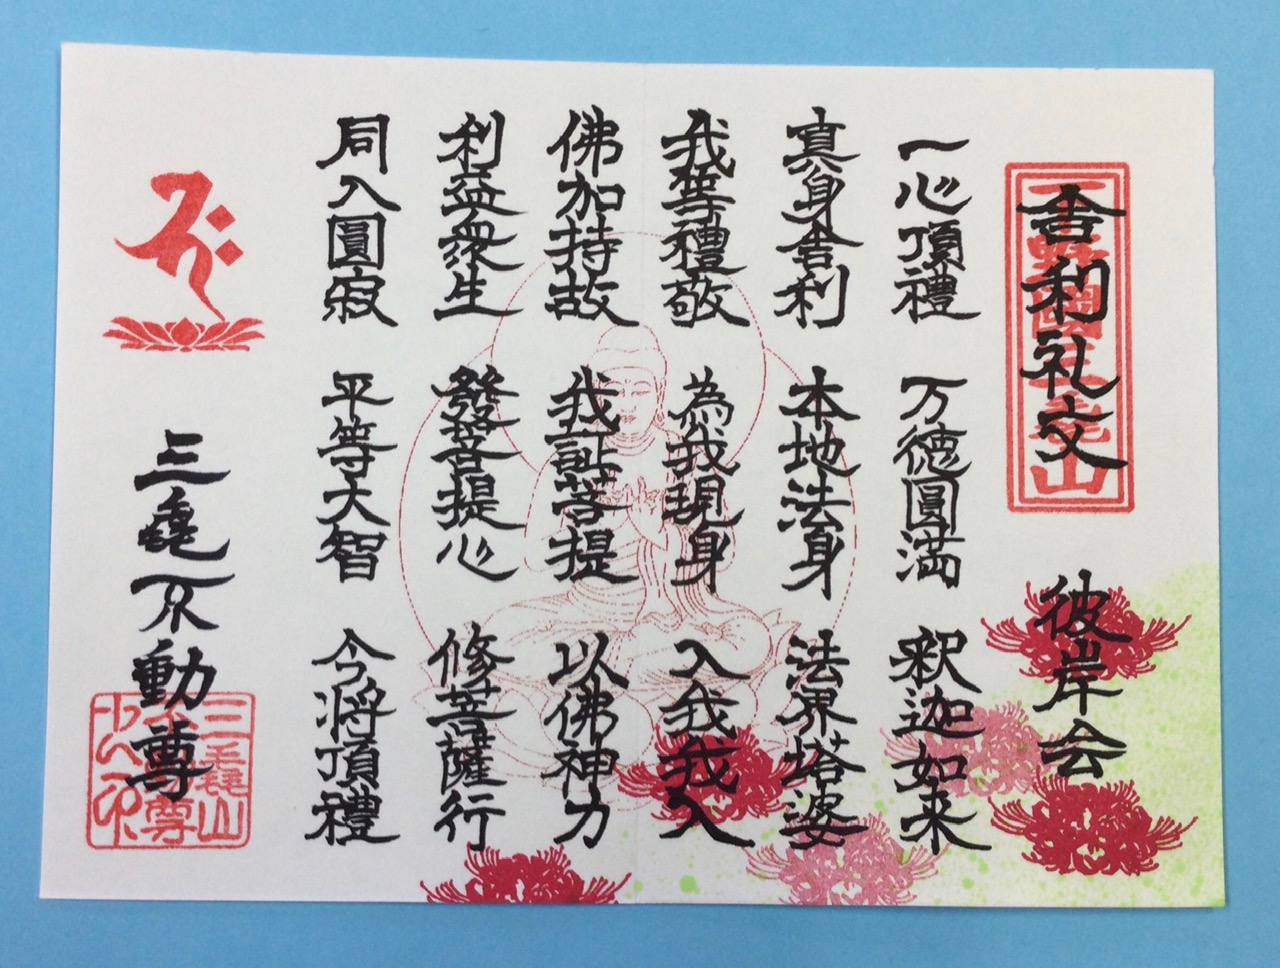 舎利礼文 彼岸会
一心頂禮 万徳圓満 釈迦如来
真身舎利 本地法身 法界塔婆
我等禮敬 為我現身 入我我入
佛加持故 我証菩提 以佛神力
利益衆生 發菩提心 修菩薩行
同入圓寂 平等大智 今将頂禮
三毳不動尊
三毳山